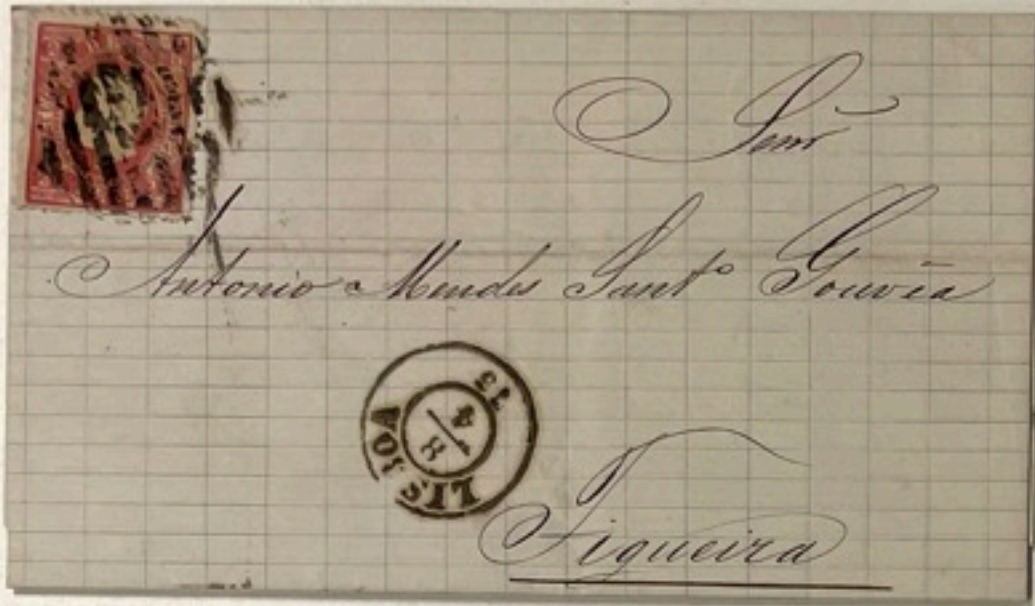 Senr
Antonio Mendes Santº Gouvêa
LISBOA
8
4
Figueira